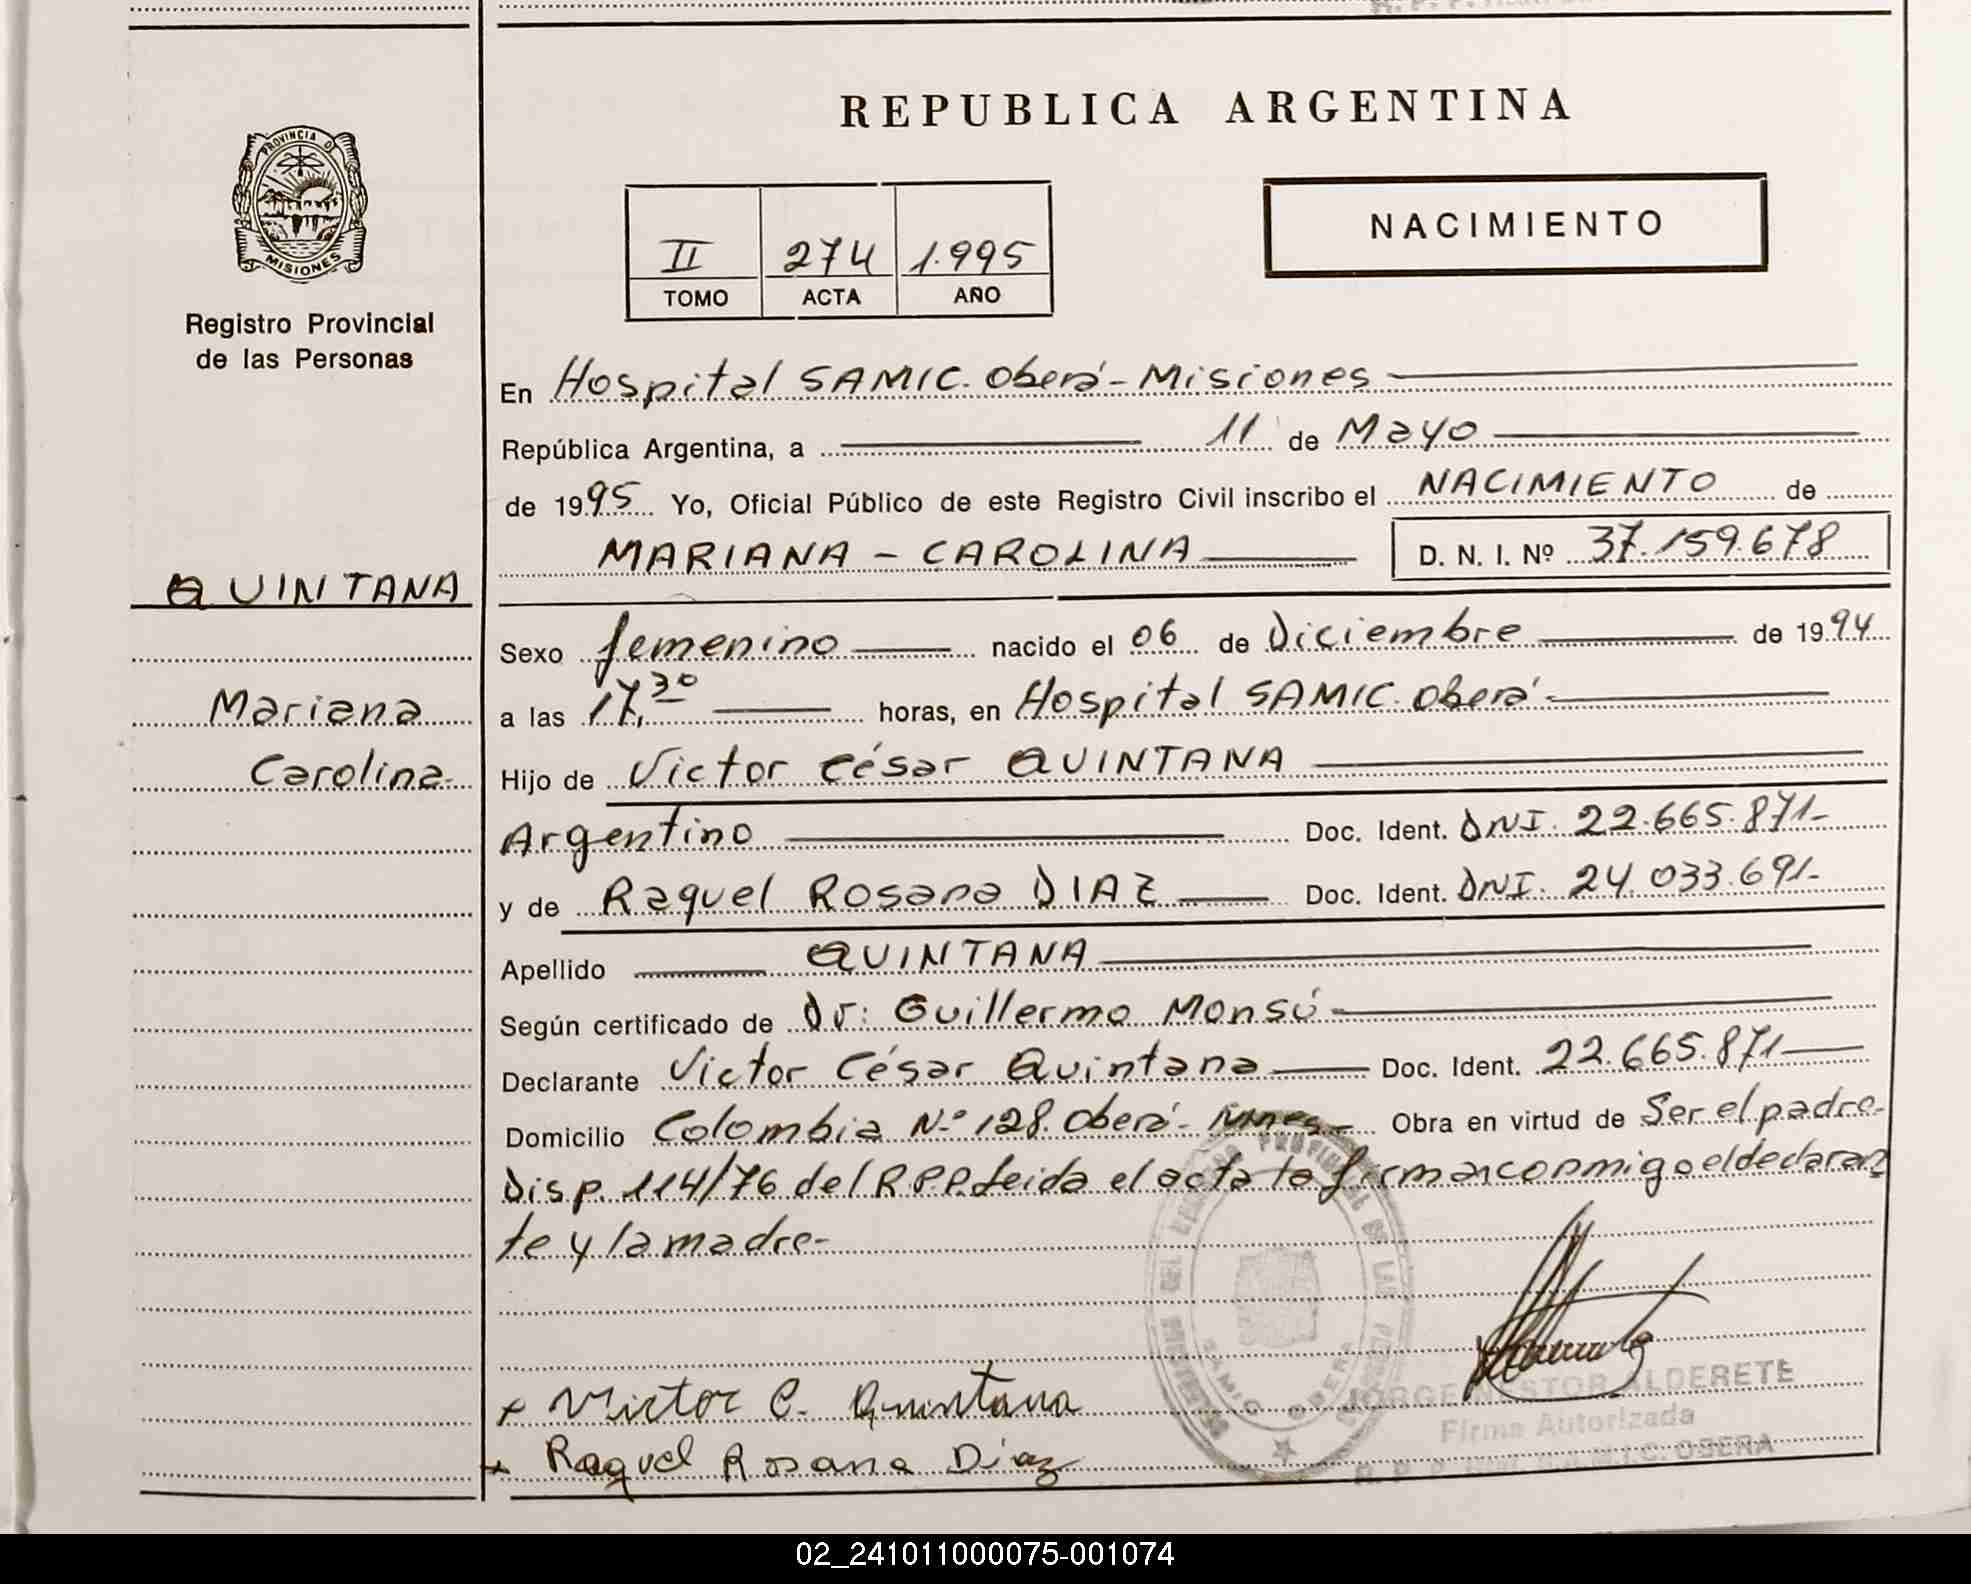 REPUBLICA ARGENTINA
PROVINCIA DE
MISIONES
Registro Provincial
de las Personas
II 274 1.995
TOMO ACTA AÑO
NACIMIENTO
En Hospital SAMIC. Oberá - Misiones
República Argentina, a 11 de Mayo
de 1995 Yo, Oficial Público de este Registro Civil inscribo el NACIMIENTO de
MARIANA - CAROLINA D. N. I. Nº 37.159.678
QUINTANA
Mariana
Carolina
Sexo femenino nacido el 06 de Diciembre de 1994
a las 17,30 horas, en Hospital SAMIC. Oberá
Hijo de Victor César QUINTANA
Argentino Doc. Ident. DNI. 22.665.871-
y de Raquel Rosana DIAZ Doc. Ident. DNI. 24.033.691-
Apellido QUINTANA
Según certificado de Dr: Guillermo Monsú
Declarante Victor César Quintana Doc. Ident. 22.665.871
Domicilio Colombia Nº 128. Oberá - Mnes. Obra en virtud de Ser el padre-
Disp. 114/76 del R.P.P. Leida el acta la firman conmigo el declaran
te y la madre-
SAMIC OBERA
x Victor C. Quintana
x Raquel Rosana Diaz
JORGE NESTOR ALDERETE
Firma Autorizada
R. P. P. S.A.M.I.C. OBERA
02_241011000075-001074